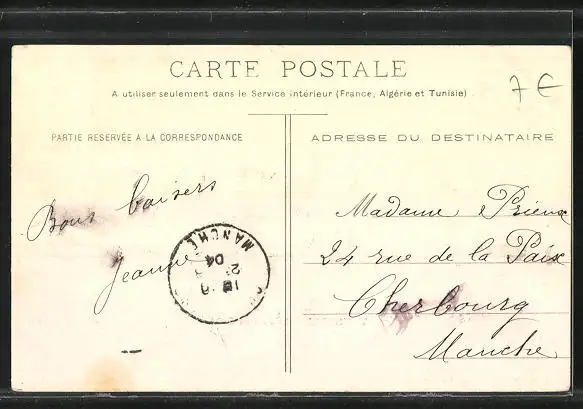 CARTE POSTALE
A utiliser seulement dans le Service intérieur (France, Algérie et Tunisie)
7 €
PARTIE RESERVÉE A LA CORRESPONDANCE
ADRESSE DU DESTINATAIRE
Bons baisers
Jeanne
MANCHE
04
Madame Prieux
24 rue de la Paix
Cherbourg
Manche